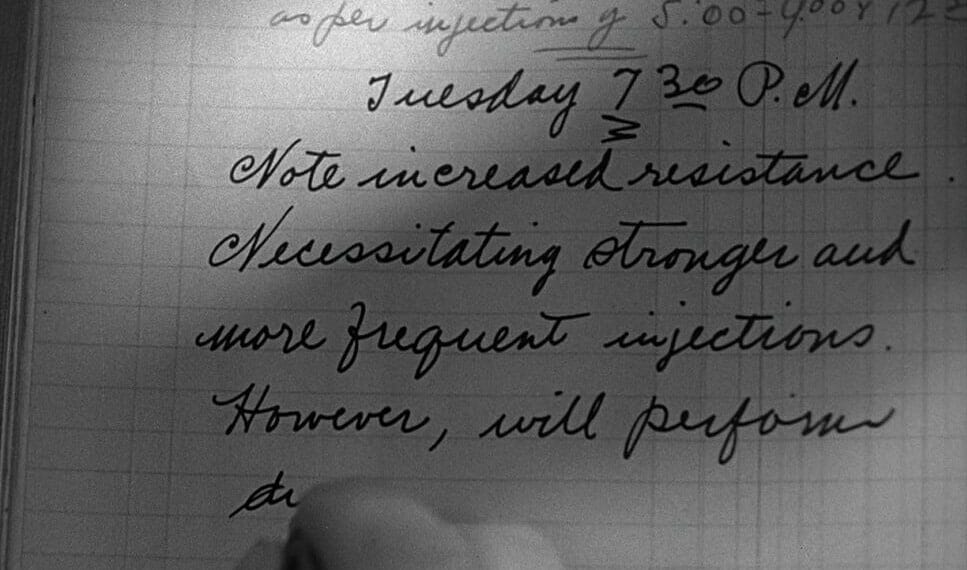 as per injections of 5:00 - 9:00
Tuesday 7 30 P.M.
Note increased resistance.
Necessitating stronger and
more frequent injections.
However, will perform